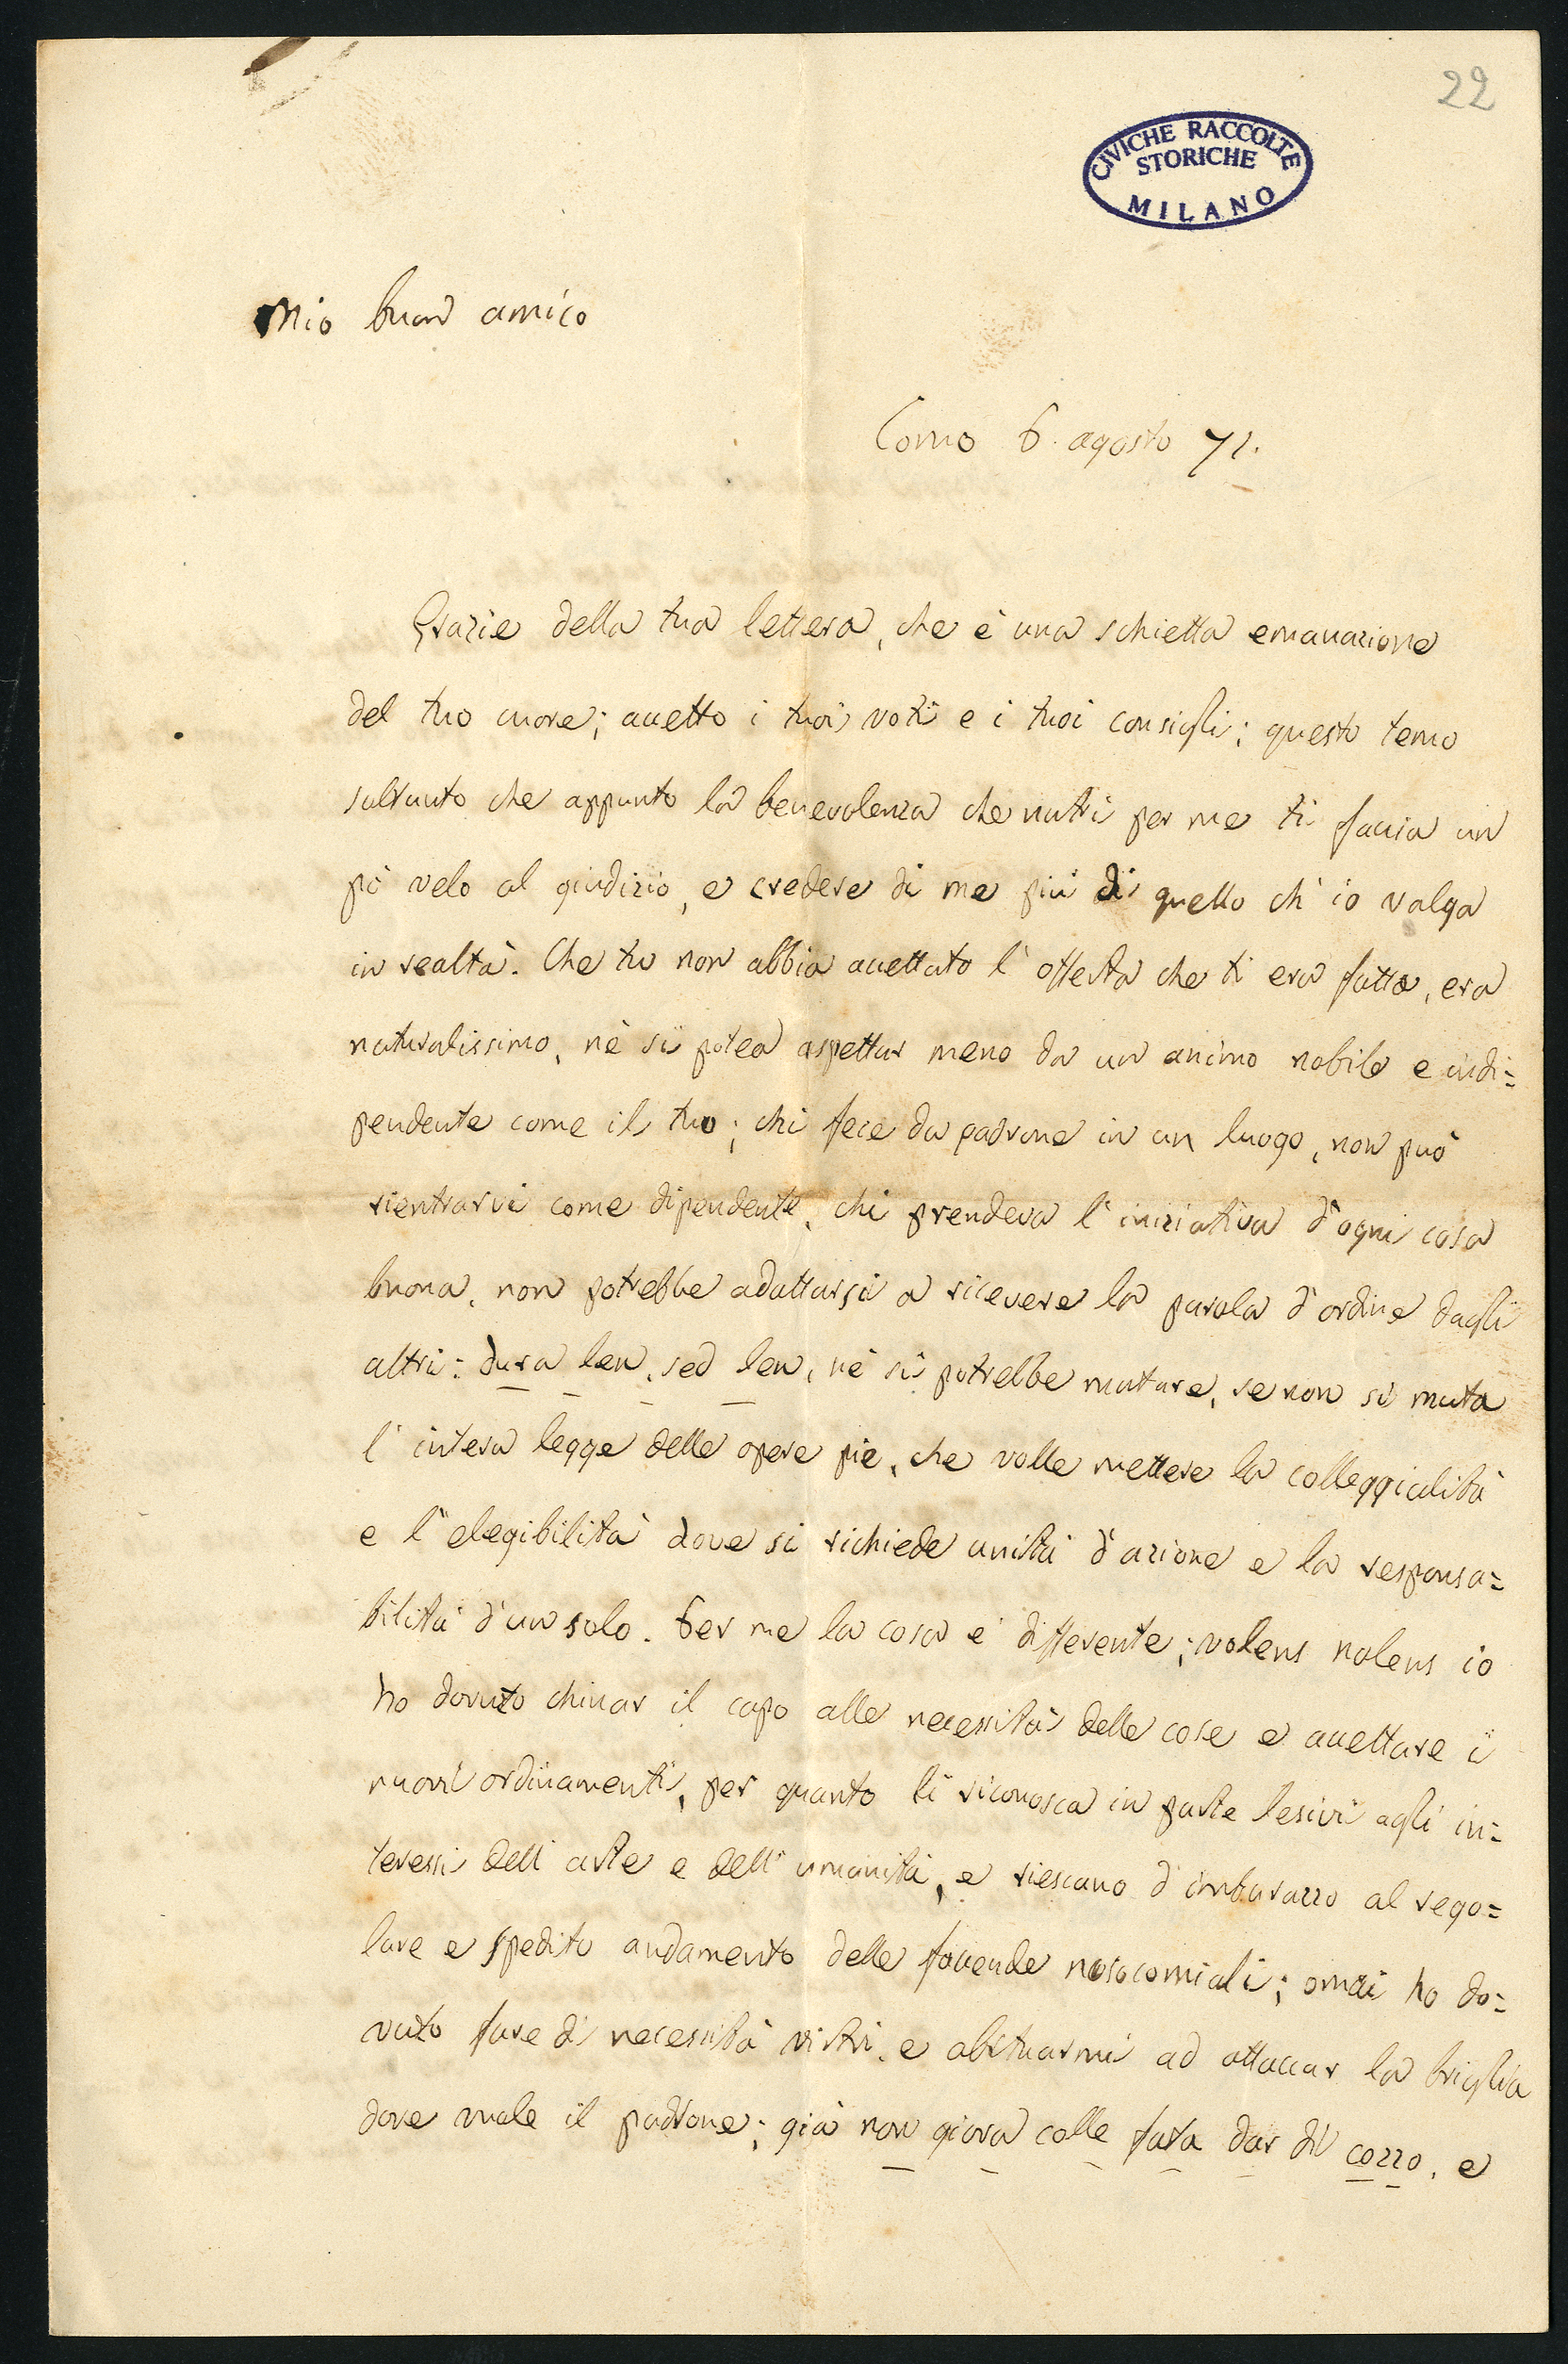 22
CIVICHE RACCOLTE
STORICHE
MILANO
Mio buon amico
Como 6. agosto 71.
Grazie della tua lettera, che è una schietta emanazione
del tuo cuore; accetto i tuoi voti e i tuoi consigli; questo temo
soltanto che appunto la benevolenza che nutri per me ti faccia un
pò velo al giudizio, e credere di me più di quello ch' io valga
in realtà. Che tu non abbia accettato l' offerta che ti era fatta, era
naturalissimo, nè si potea aspettar meno da un animo nobile e indi=
pendente come il tuo; chi fece da padrone in un luogo, non può
rientrarvi come dipendente, chi prendeva l' iniziativa d' ogni cosa
buona, non potrebbe adattarsi a ricevere la parola d' ordine dagli
altri: dura lex, sed lex, nè si potrebbe mutare, se non si muta
l' intera legge delle opere pie, che volle mettere la colleggialità
e l' elegibilità dove si richiede unità d' azione e la responsa=
bilità d' un solo. Per me la cosa è differente; volens nolens io
ho dovuto chinar il capo alle necessità delle cose e accettare i
nuovi ordinamenti, per quanto li riconosca in parte lesivi agli in=
teressi dell' arte e dell' umanità, e riescano d' imbarazzo al rego=
lare e spedito andamento delle faccende nosocomiali; omai ho do=
vuto fare di necessità virtù, e abituarmi ad attaccar la briglia
dove vuole il padrone; già non giova colle fata dar di cozzo, e